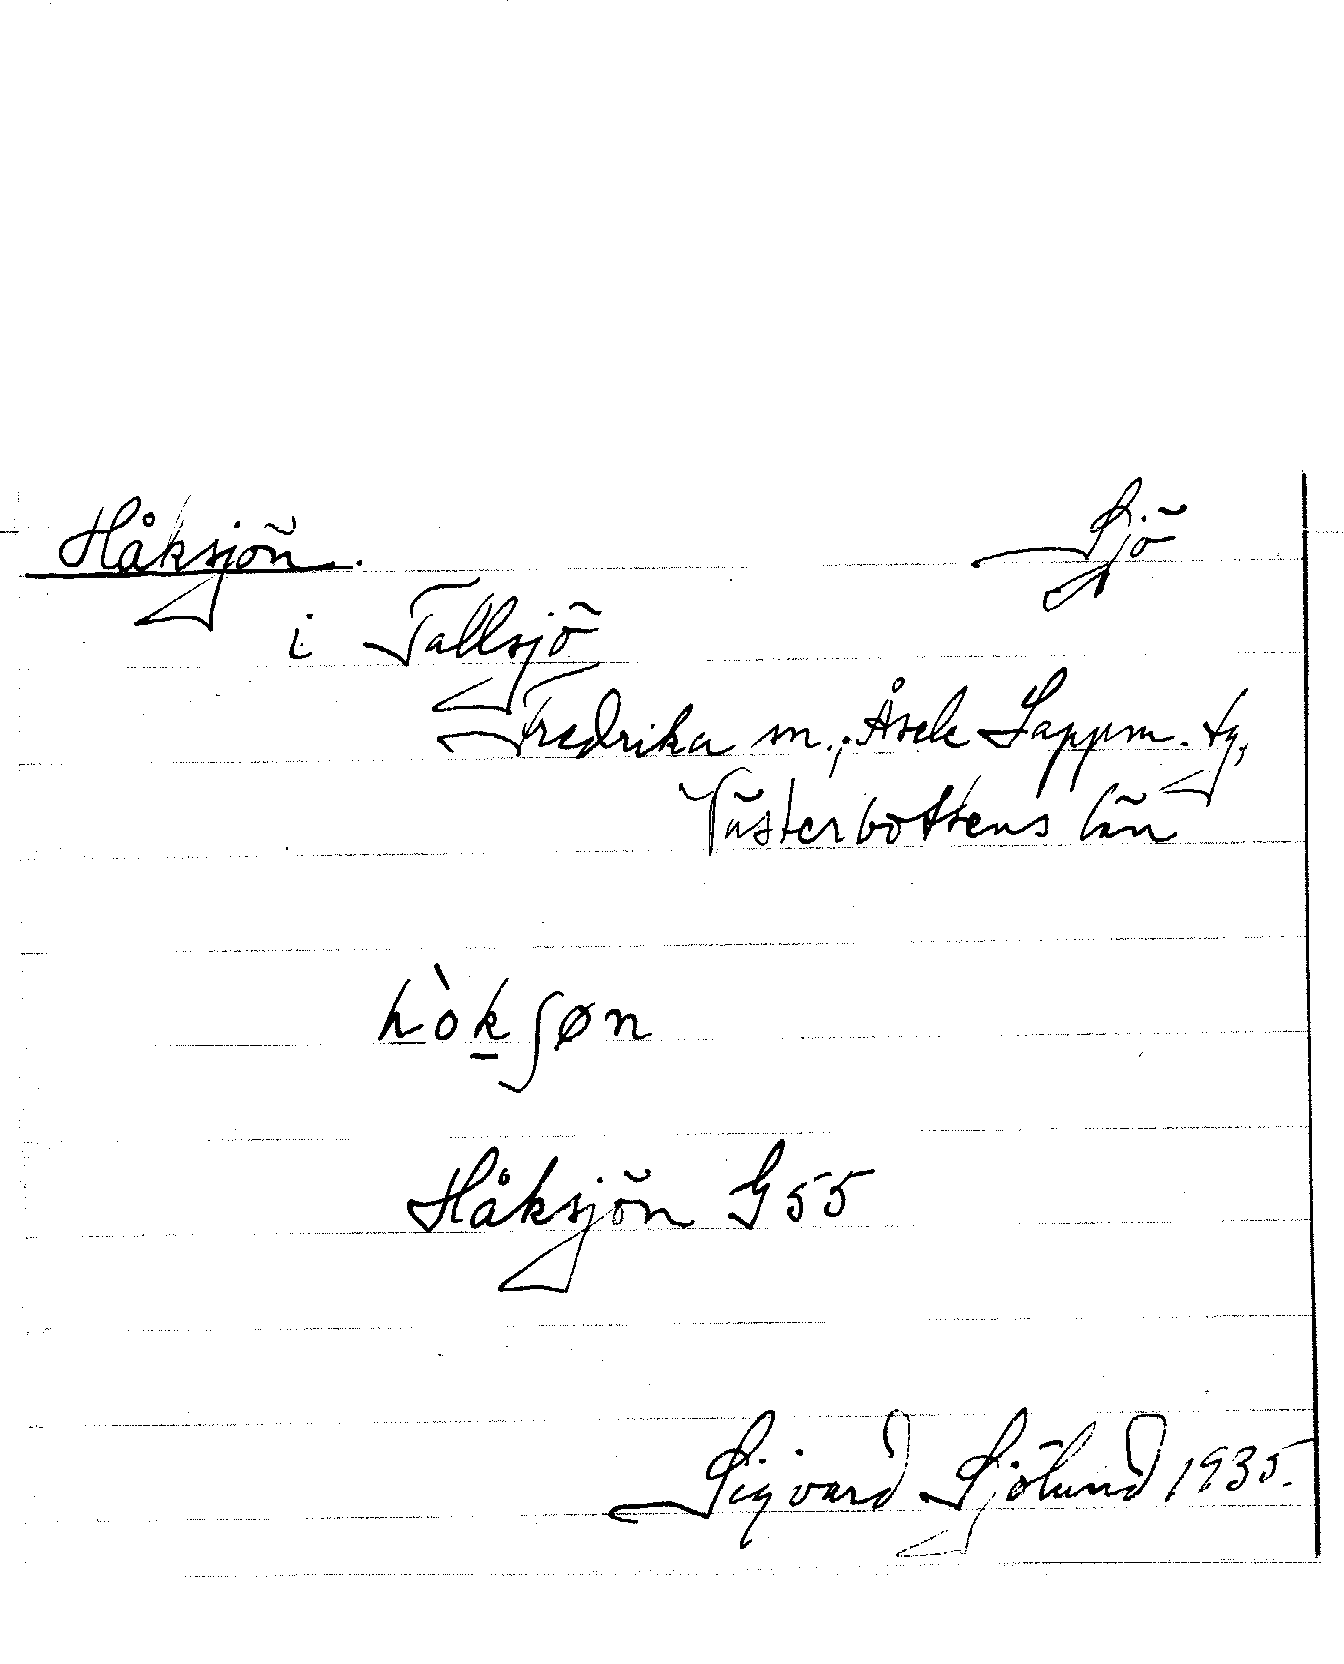 Håksjön. Sjö
i Tallsjö
Fredrika sn., Åsele Lappm. tg,
Västerbottens län
hòk̲ʃøn
Håksjön G55
Sigvard Sjölund 1935.